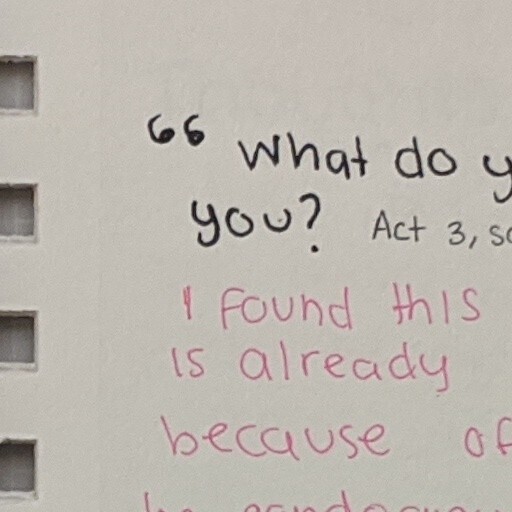 “ What do y
you? Act 3, sc
I found this
is already
because of